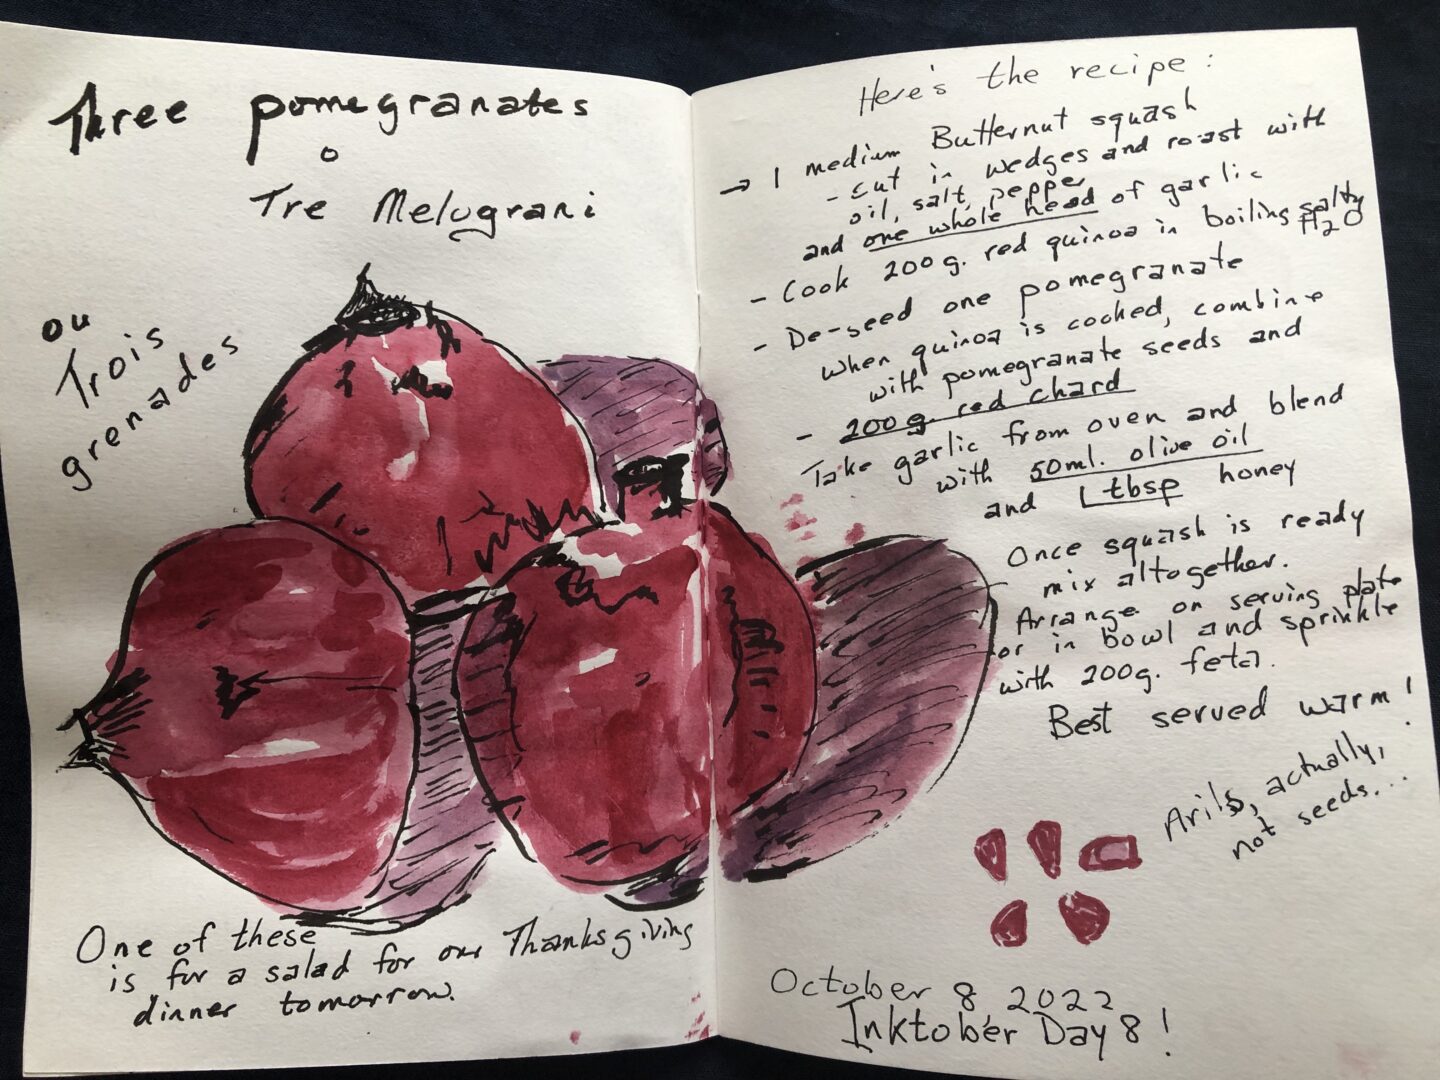 Three pomegranates
o
Tre Melograni
ou
Trois
grenades
One of these
is for a salad for our Thanksgiving
dinner tomorrow.
Here's the recipe:
→ 1 medium Butternut squash
- cut in wedges and roast with
oil, salt, pepper
and one whole head of garlic
- Cook 200g. red quinoa in boiling salty
H2O
- De-seed one pomegranate
when quinoa is cooked, combine
with pomegranate seeds and
- 200g. red chard
Take garlic from oven and blend
with 50ml. olive oil
and 1 tbsp honey
Once squash is ready
mix altogether.
Arrange on serving plate
or in bowl and sprinkle
with 200g. feta.
Best served warm!
Arils, actually,
not seeds...
October 8 2022
Inktober Day 8!